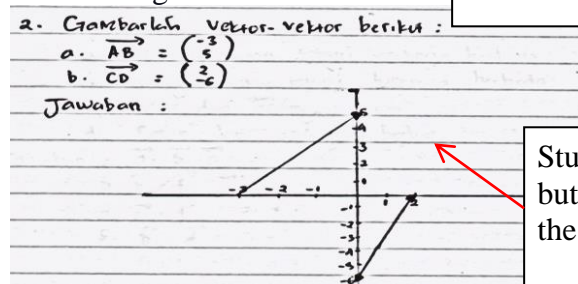 2. Gambarlah vektor-vektor berikut :
a. AB = (-3 5)
b. CD = (2 -6)
Jawaban :
5
4
3
2
1
-3 -2 -1 1 2
-1
-2
-3
-4
-5
-6
Stu
but
the